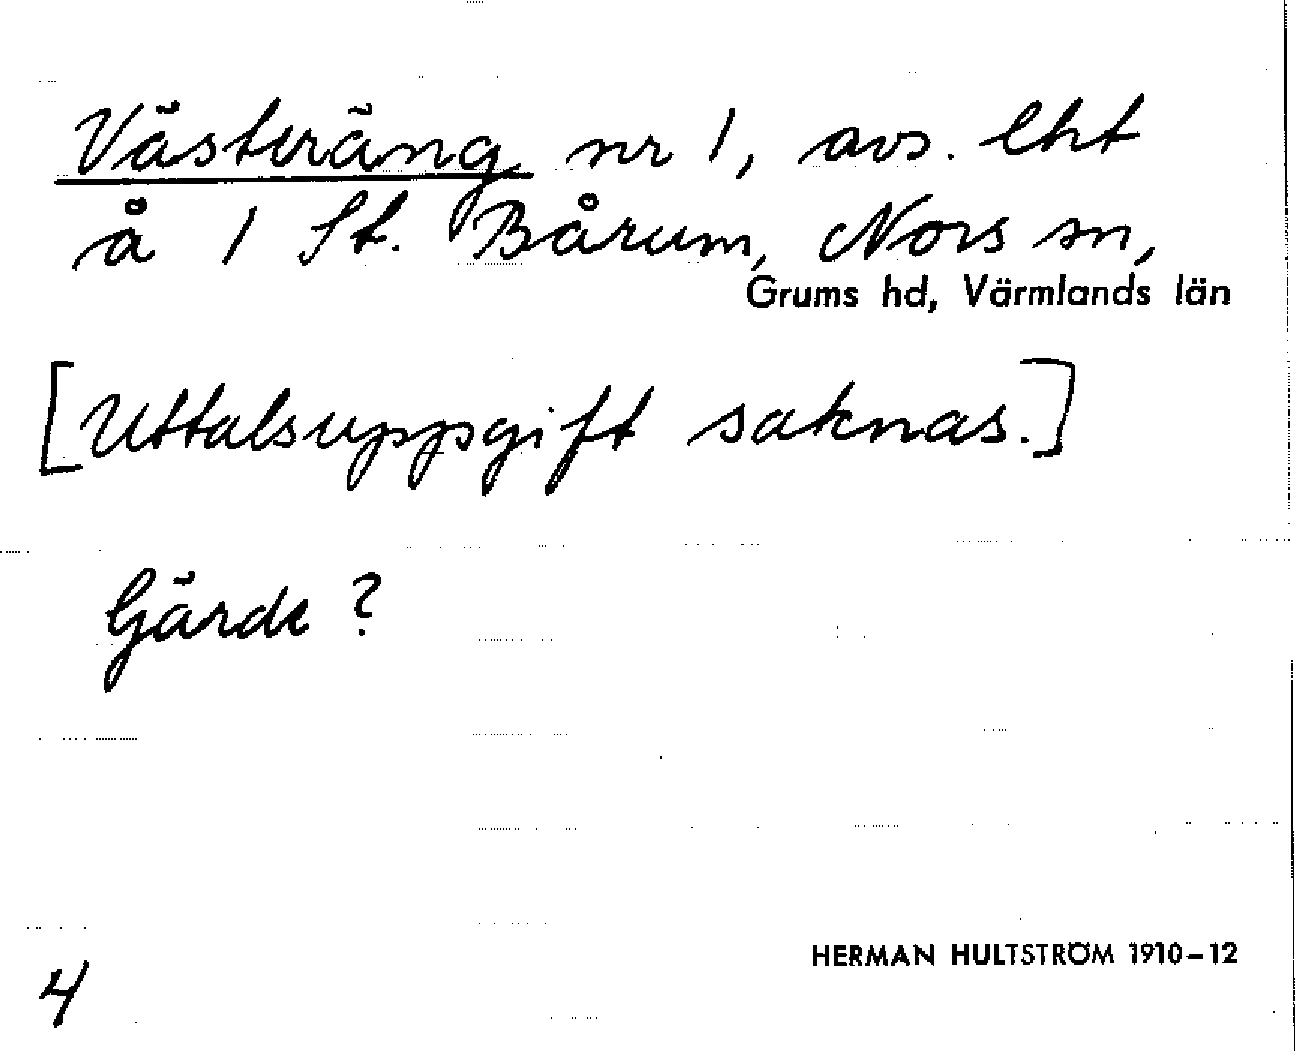 Västeräng nr 1, avs. lht
å 1 St. Bårum, Nors sn,
Grums hd, Värmlands län
[Uttalsuppgift saknas.]
Gärde?
HERMAN HULTSTRÖM 1910–12
4